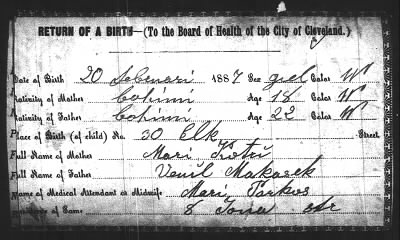 RETURN OF A BIRTH—(To the Board of Health of the City of Cleveland.)
Date of Birth 20 Sebenari 1887 Sex girl Color W
Nativity of Mother bohimi Age 18 Color W
Nativity of Father bohimi Age 22 Color W
Place of Birth (of child) No. 30 Elk Street
Full Name of Mother Mari
Full Name of Father Makasek
Name of Medical Attendant or Midwife Mari Parkos
Residence of Same 8 Iowa str